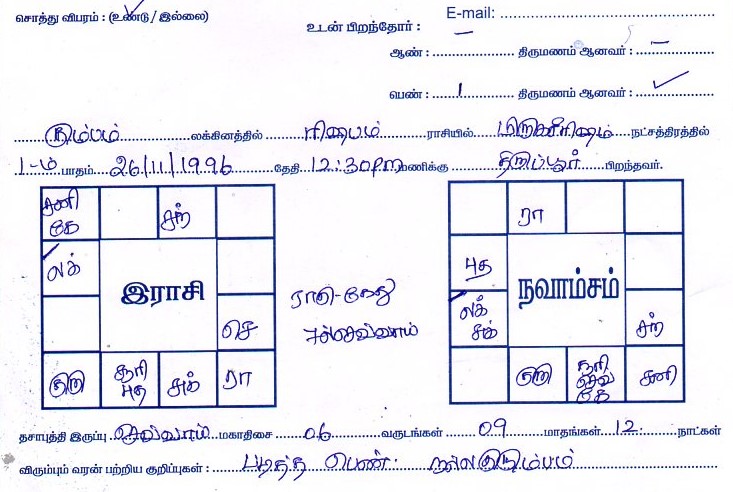 சொத்து விபரம் : (உண்டு / இல்லை)
உடன் பிறந்தோர் : E-mail:
ஆண் : – திருமணம் ஆனவர் : –
பெண் : 1 திருமணம் ஆனவர் : ✓
கும்பம் லக்கினத்தில் ரிஷபம் ராசியில் மிருகசீரிஷம் நட்சத்திரத்தில்
1-ம் பாதம் 26/11/1996 தேதி 12:30pm மணிக்கு திருப்பூர் பிறந்தவர்.
சனி கே சந்
லக்
இராசி
செ
குரு சூரி புத சுக் ரா
ராகு-கேது
7ல் செவ்வாய்
ரா
புத
நவாம்சம்
லக் சுக் சந்
குரு சூரி செவ் கே சனி
தசாபுத்தி இருப்பு செவ்வாய் மகாதிசை 06 வருடங்கள் 09 மாதங்கள் 12 நாட்கள்
விரும்பும் வரன் பற்றிய குறிப்புகள் : படித்த பெண். நல்லகுடும்பம்